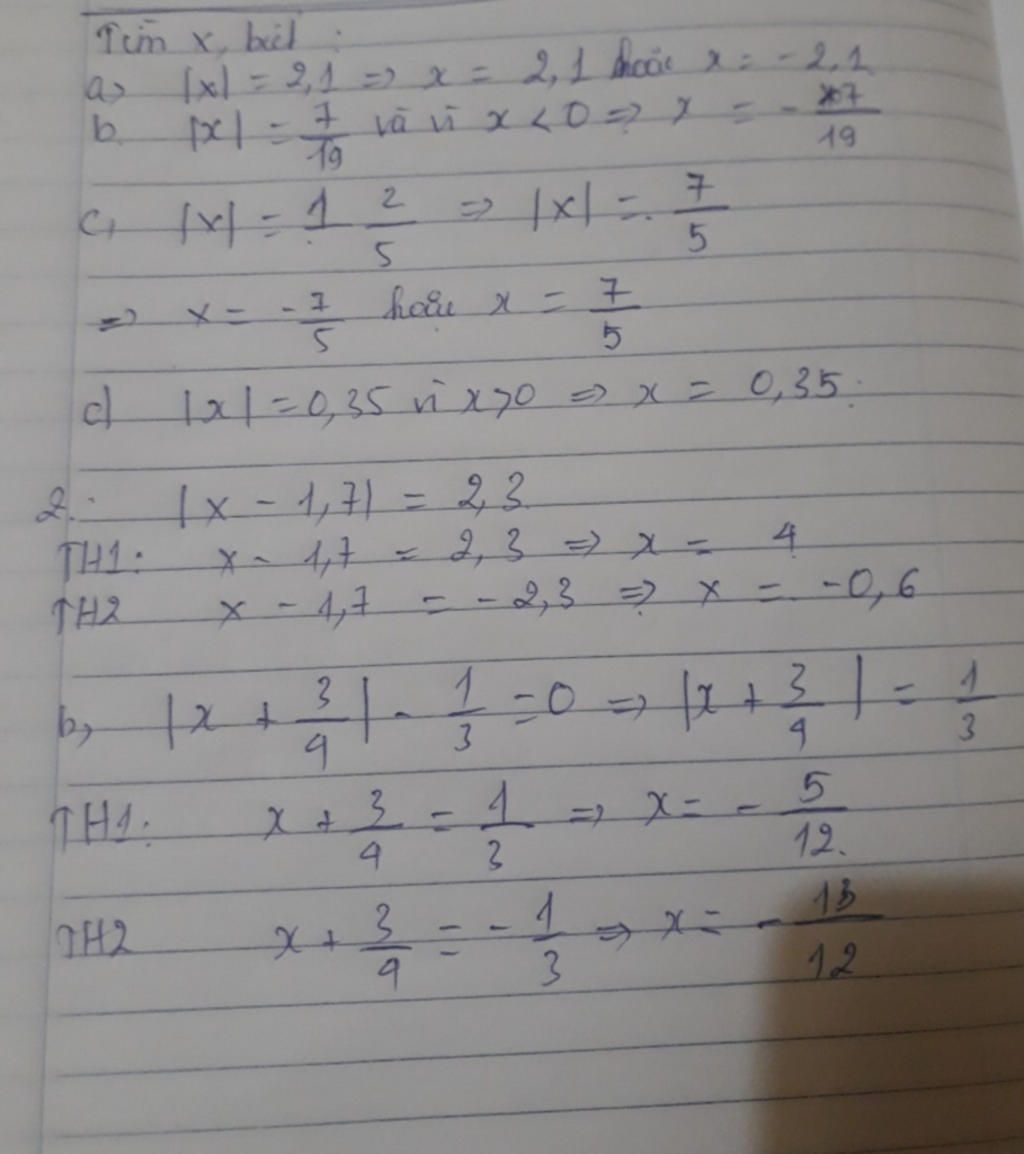 Tìm x, biết :
a) |x| = 2,1 => x = 2,1 hoặc x = - 2,1
b |x| = 7/19 và vì x < 0 => x = - 7/19
c, |x| = 1 2/5 => |x| = 7/5
=> x = - 7/5 hoặc x = 7/5
d |x| = 0,35 vì x > 0 => x = 0,35.
2. |x - 1,7| = 2,3
TH1: x - 1,7 = 2,3 => x = 4
TH2 x - 1,7 = - 2,3 => x = -0,6
b, |x + 3/4| - 1/3 = 0 => |x + 3/4| = 1/3
TH1: x + 3/4 = 1/3 => x = - 5/12.
TH2 x + 3/4 = - 1/3 => x = - 13/12